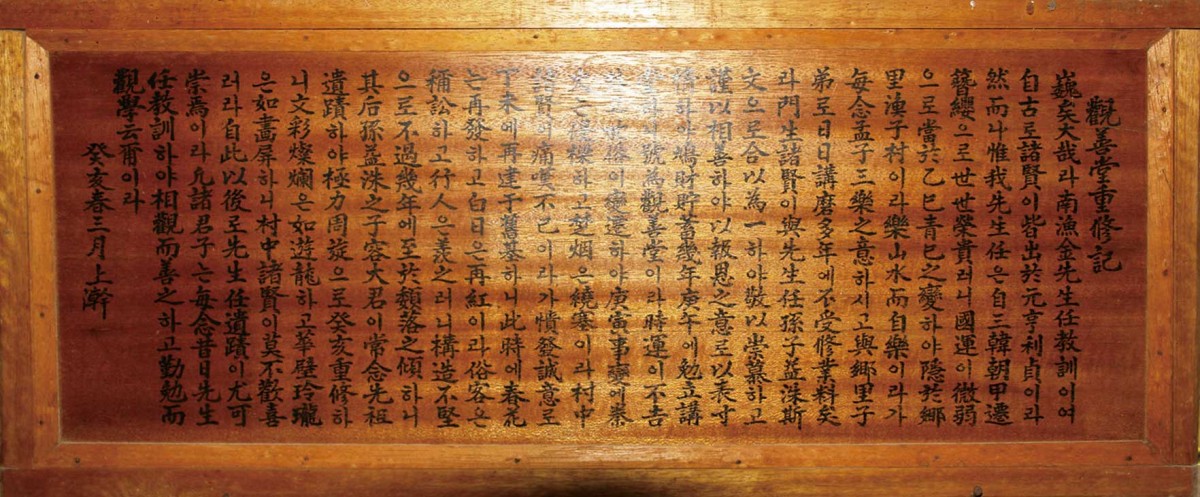 觀善堂重修記
巍矣大哉라南漁金先生任教訓이여
自古로諸賢이皆出於元亨利貞이라
然而나惟我先生任은自三韓朝甲遷
簪纓으로世世榮貴러니國運이微弱
으로當於乙巳青巳之變하야隱於鄉
里漁子村이라樂山水而自樂이라가
每念孟子三樂之意하시고與鄉里子
弟로日日講磨多年에不受修業料矣
라門生諸賢이與先生任孫子益洙斯
文으로合以為一하야敬以崇慕하고
謹以相善하야以報恩之意로以表寸
하야鳩財貯蓄幾年庚午에勉立講
號為觀善堂이라時運이不吉
俗이變遷하야庚寅事變에
하고烟은繞塞이라村中
諸賢이痛嘆不已이라가憤發誠意로
丁未에再建于舊基하니此時에春花
는再發하고白日은再紅이라俗客은
稱訟하고行人은羨之러니構造不堅
으로不過幾年에至於頹落之傾하니
其后孫益洙之子容大君이常念先祖
遺蹟하야極力周旋으로癸亥重修하
니文彩燦爛은如遊龍하고華壁玲瓏
은如畵屏하니村中諸賢이莫不歡喜
러라自此以後로先生任遺蹟이尤可
崇焉이라凡諸君子는每念昔日先生
任教訓하야相觀而善之하고勤勉而
觀學云爾이라
癸亥春三月上澣